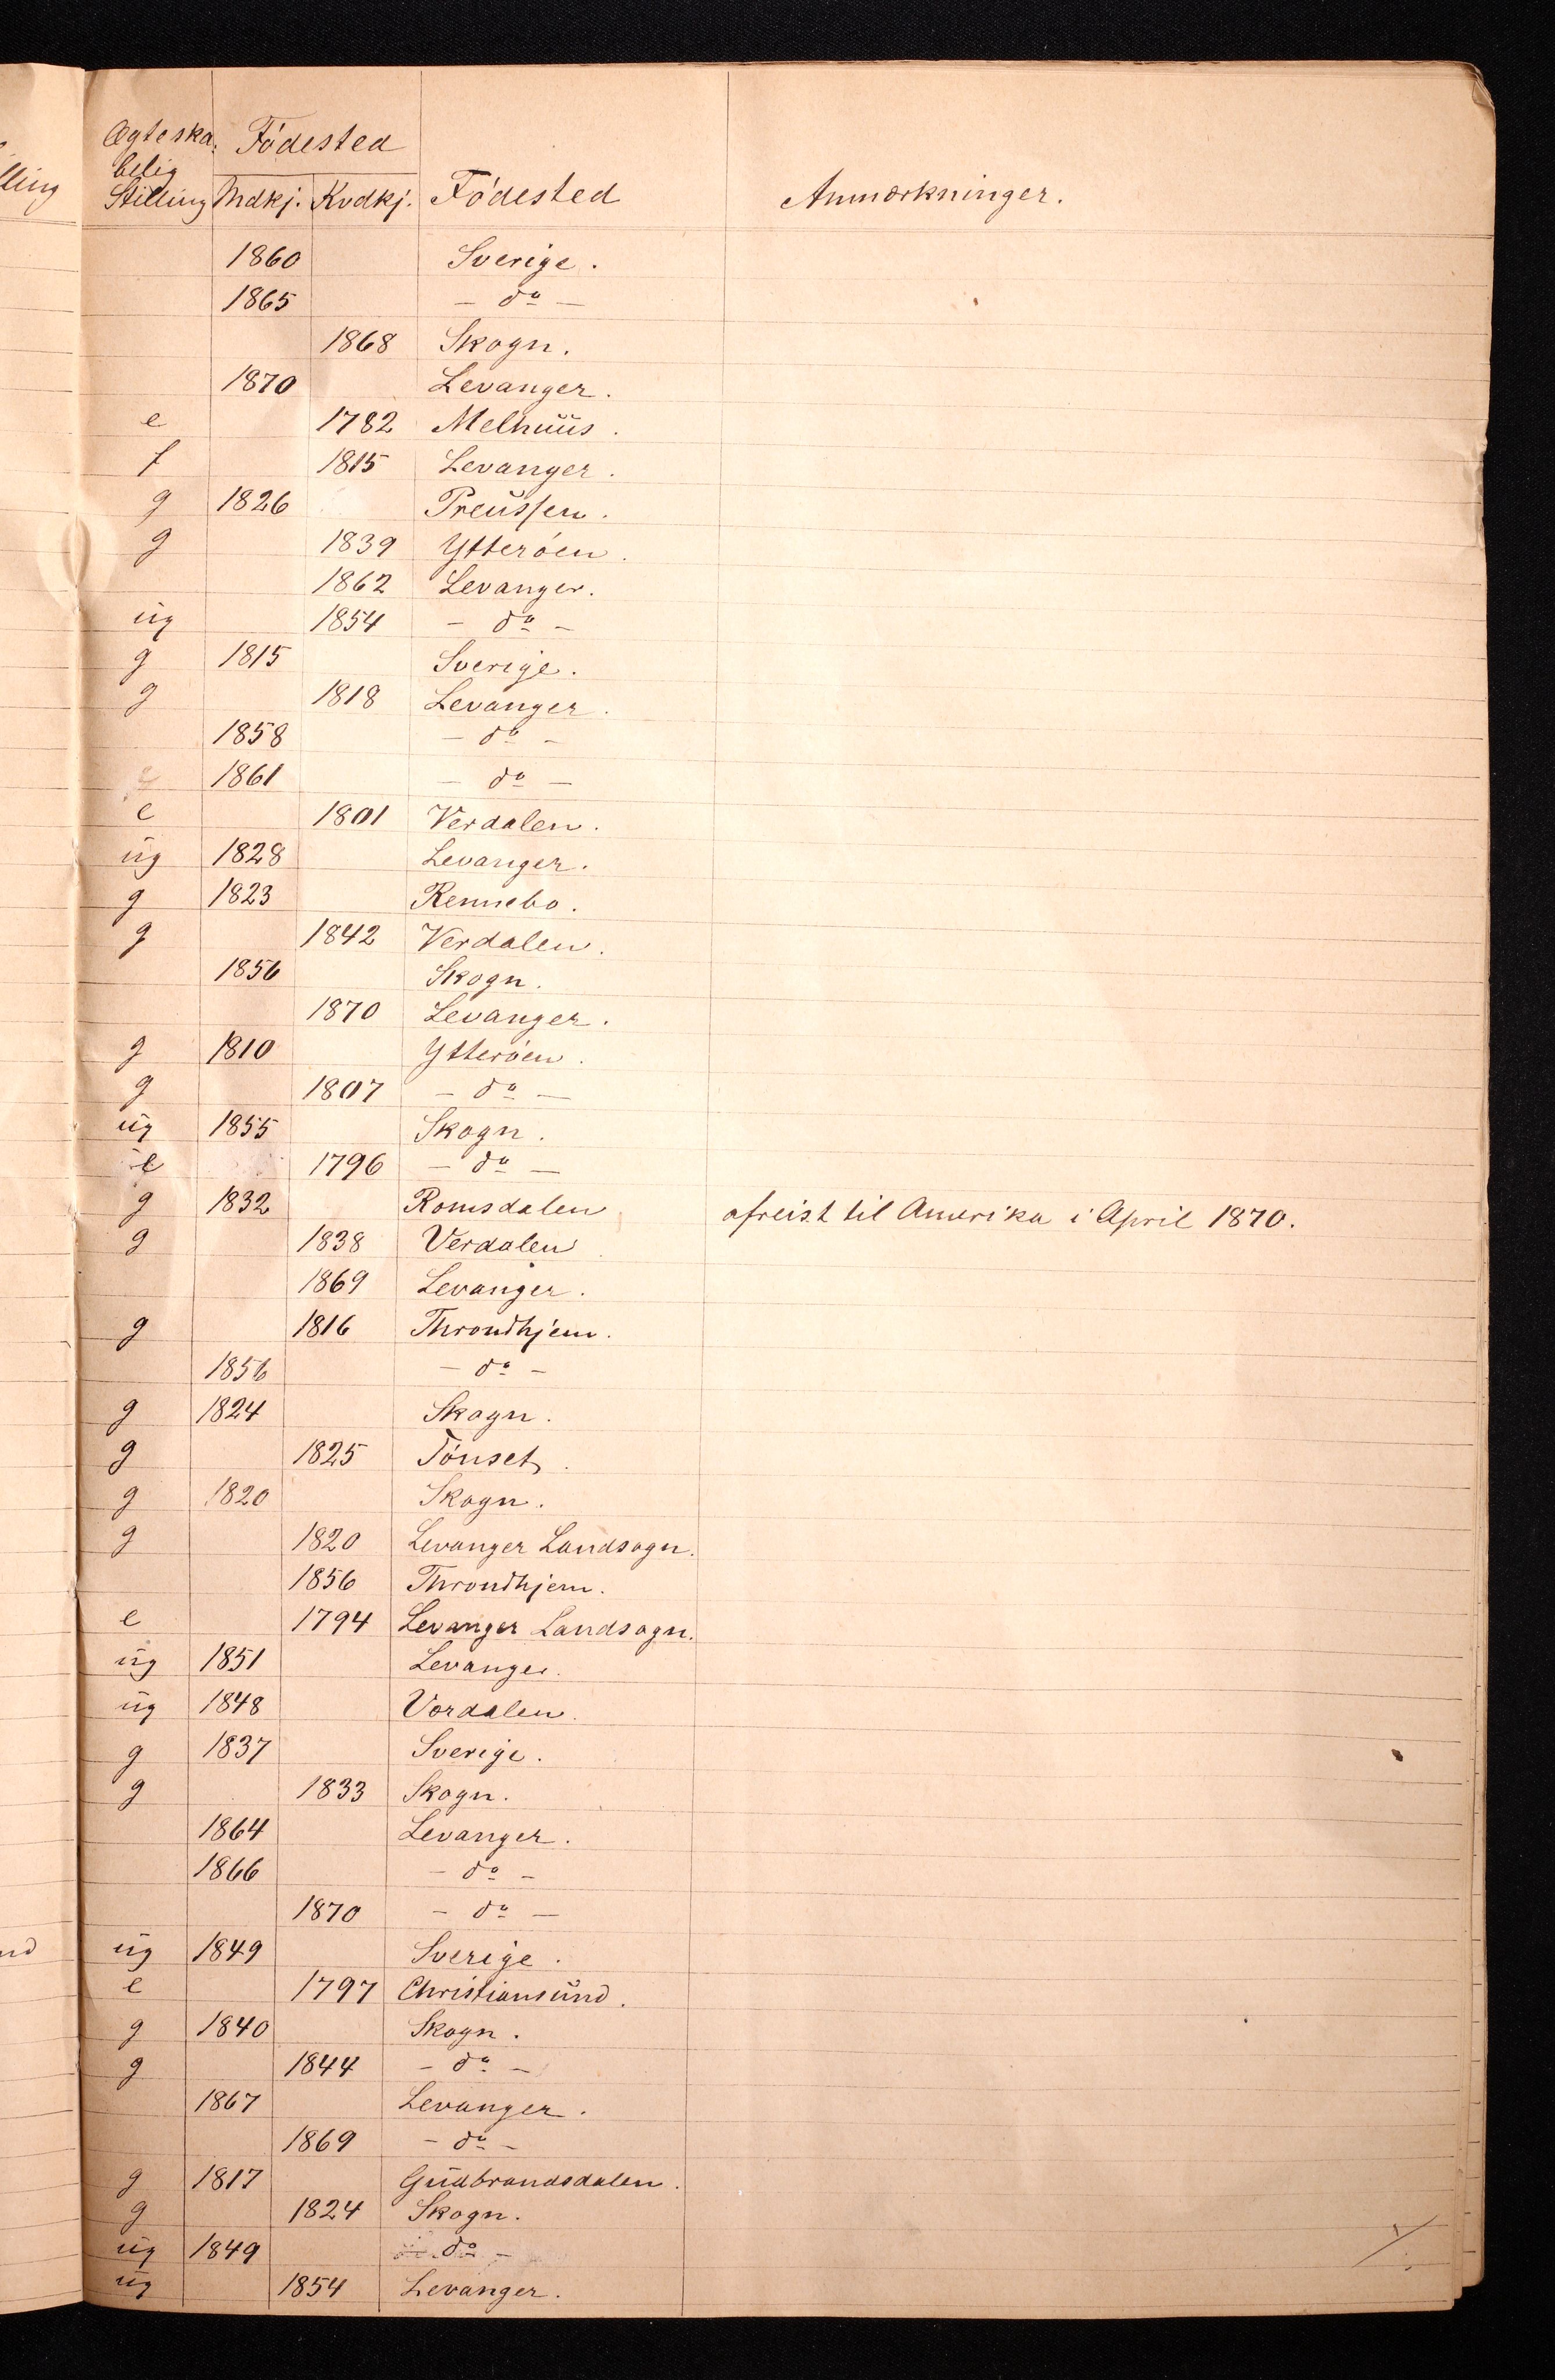 Ægteska: Födested
belig
Stilling Mdkj. Kvdkj. Födested Anmærkninger.
1860 Sverige.
1865 - do -
1868 Skogn.
1870 Levanger.
e 1782 Melhuus.
f 1815 Levanger.
g 1826 Preussen.
g 1839 Ytteröen.
1862 Levanger.
ug 1854 - do -
g 1815 Sverige.
g 1818 Levanger.
1858 - do -
1861 - do -
e 1801 Verdalen.
ug 1828 Levanger.
g 1823 Rennebo.
g 1842 Verdalen.
1856 Skogn.
1870 Levanger.
g 1810 Ytteröen.
g 1807 - do -
ug 1855 Skogn.
e 1796 - do -
g 1832 Romsdalen afreist til Amerika i April 1870.
g 1838 Verdalen.
1869 Levanger.
g 1816 Throndhjem.
1856 - do -
g 1824 Skogn.
g 1825 Tönset.
g 1820 Skogn.
g 1820 Levanger Landsogn.
1856 Throndhjem.
e 1794 Levanger Landsogn.
ug 1851 Levanger.
ug 1848 Vordalen.
g 1837 Sverige.
g 1833 Skogn.
1864 Levanger.
1866 - do -
1870 - do -
ug 1849 Sverige.
e 1797 Christiansund.
g 1840 Skogn.
g 1844 - do -
1867 Levanger.
1869 - do -
g 1817 Gudbrandsdalen.
g 1824 Skogn.
ug 1849 - do -
ug 1854 Levanger.